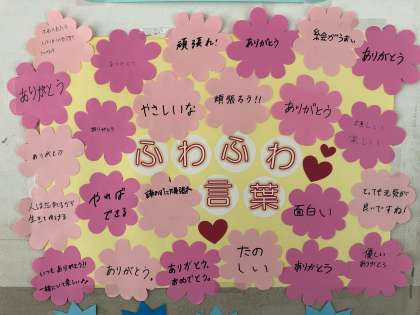 頑張れ!
ありがとう
絵がうまい
ありがとう
ありがとう
ありがとう
やさしいな
頑張ろう!!
ありがとう
ありがとう
ありがとう
ふわふわ
言葉
やれば
できる
面白い
とっても元気が
良いですね!
いつもありがとう!!
一緒にいて楽しいよ
ありがとう。
ありがとう。
おめでとう。
たの
しい
ありがとう
優しい
ありがとう